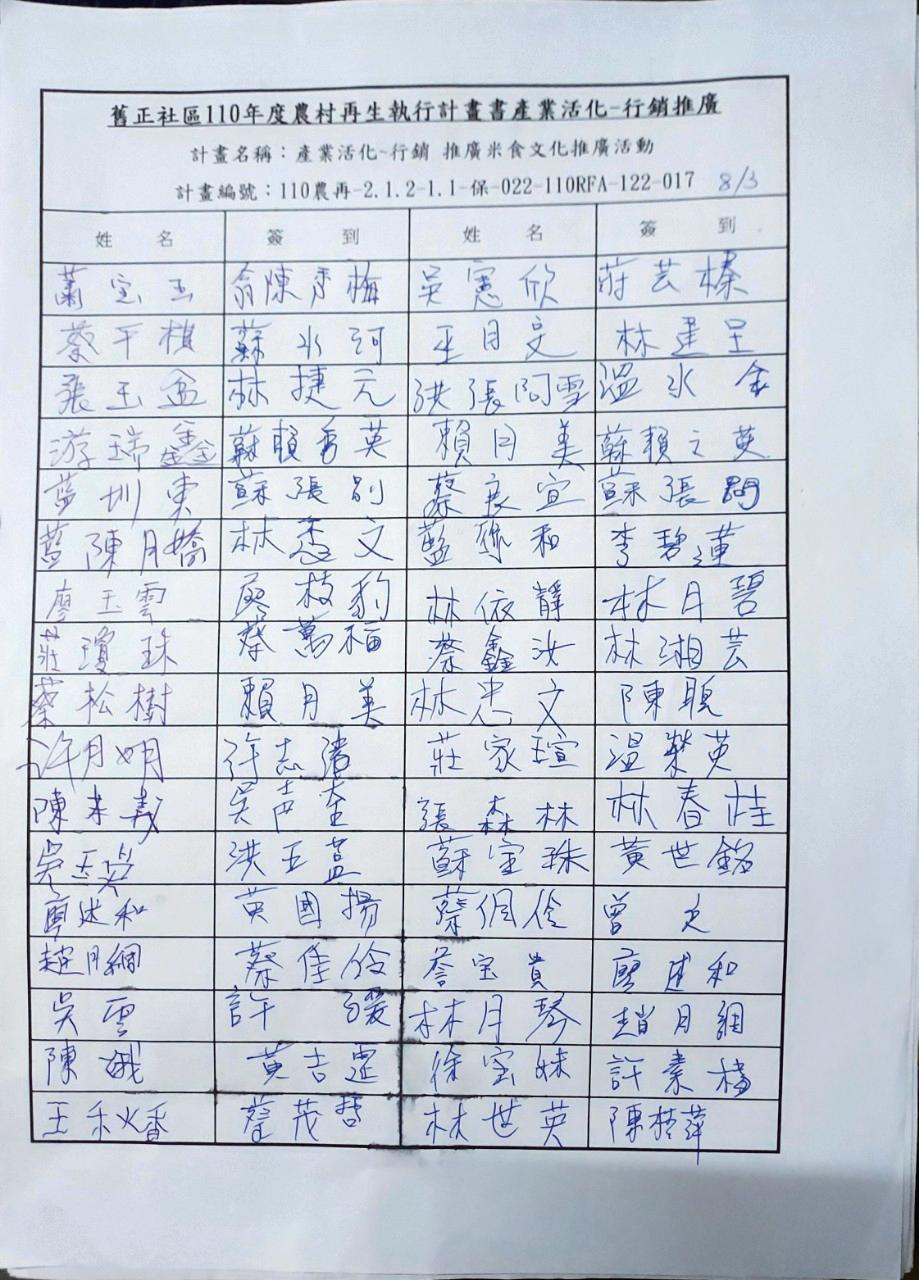 舊正社區110年度農村再生執行計畫書產業活化-行銷推廣
計畫名稱：產業活化~行銷 推廣米食文化推廣活動
計畫編號：110農再-2.1.2-1.1-保-022-110RFA-122-017 8/3
姓 名 簽 到 姓 名 簽 到
蕭宝玉 翁陳秀梅 吳憲欣 莊芸榛
蔡干楨 蘇水河 巫月文 林建呈
張玉盆 林捷元 洪張阿雪 溫水金
游瑞鑫 蘇賴秀英 賴月美 蘇賴之英
藍圳東 蘇張別 蔡良宜 蘇張問
藍陳月嬌 林文 藍和 李碧蓮
廖玉雲 廖枝豹 林依靜 林月碧
莊瓊珠 蔡萬福 蔡鑫汝 林湘芸
蔡松樹 賴月美 林忠文 陳聰
許月明 許志 莊家瑄 溫榮英
陳未義 吳 張森林 林春桂
吳玉 洪玉 蘇宝珠 黃世銘
廖述和 黃國揚 蔡佩伶 曾文
趙月網 蔡佳伶 詹宝貴 廖述和
吳雲 許 林月琴 趙月網
陳娥 黃吉 徐宝妹 許素梅
王秋香 蔡茂哲 林世英 陳萍